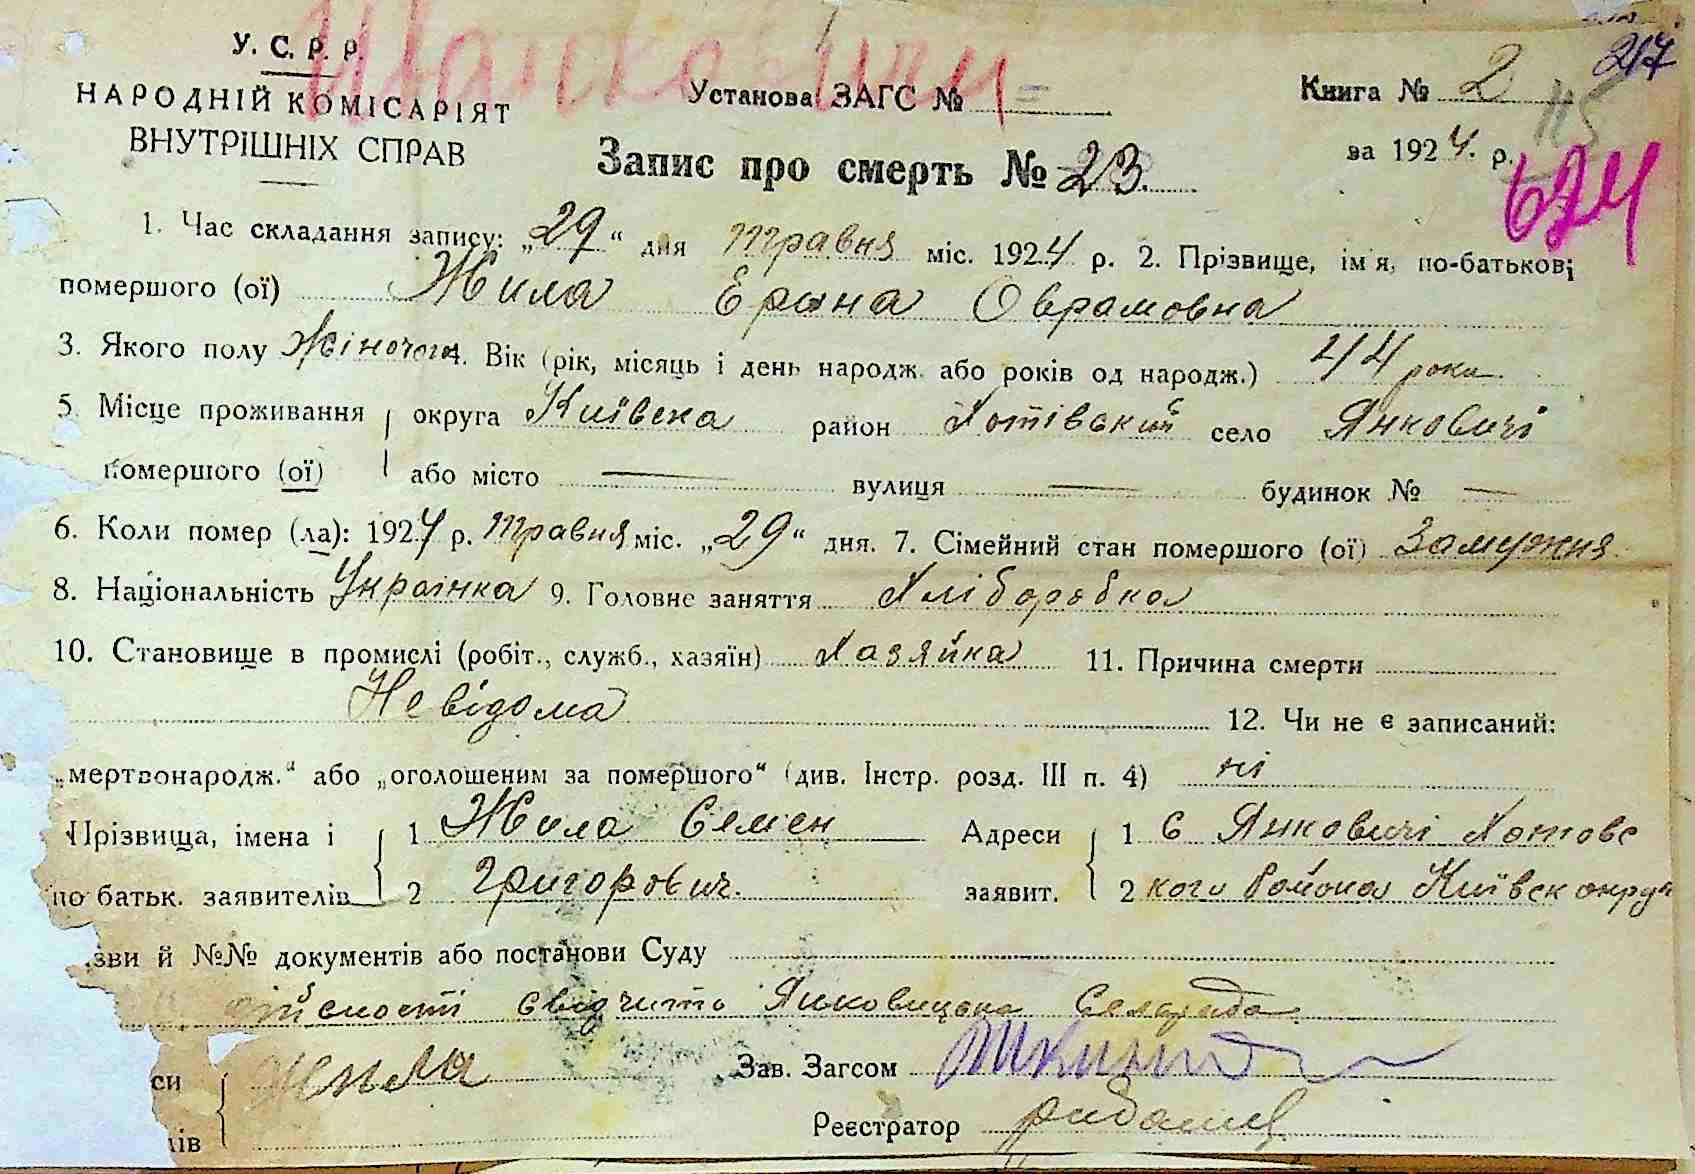 217
У. С. Р. Р.
Янковичи
НАРОДНІЙ КОМІСАРІЯТ
ВНУТРІШНІХ СПРАВ
Установа ЗАГС №
Книга № 2
115
за 1924. р.
674
Запис про смерть № 23.
1. Час складання запису: „29“ дня травня міс. 1924 р. 2. Прізвище, імя, по-батькові
помершого (ої) Жила Ерина Оврамовна
3. Якого полу Жіночого 4. Вік (рік, місяць і день народж. або років од народж.) 44 роки
5. Місце проживання округа Київска район Хотівский село Янковичі
помершого (ої) або місто — вулиця — будинок № —
6. Коли помер (ла): 1924 р. травня міс. „29“ дня. 7. Сімейний стан помершого (ої) Замужня
8. Національність Українка 9. Головне заняття Хліборобка
10. Становище в промислі (робіт., служб., хазяїн) Хазяйка 11. Причина смерти
Невідома 12. Чи не є записаний:
„мертвонародж.“ або „оголошеним за помершого“ (див. Інстр. розд. III п. 4) ні
Прізвища, імена і 1 Жила Семен Адреси 1 С Янковичі Хотовс
по батьк. заявителів 2 Григорович. заявит. 2 кого Района Київск округи
зви й №№ документів або постанови Суду
дійсности свідчить Янковицька Сельрада
си Жила Зав. Загсом
лів Реєстратор